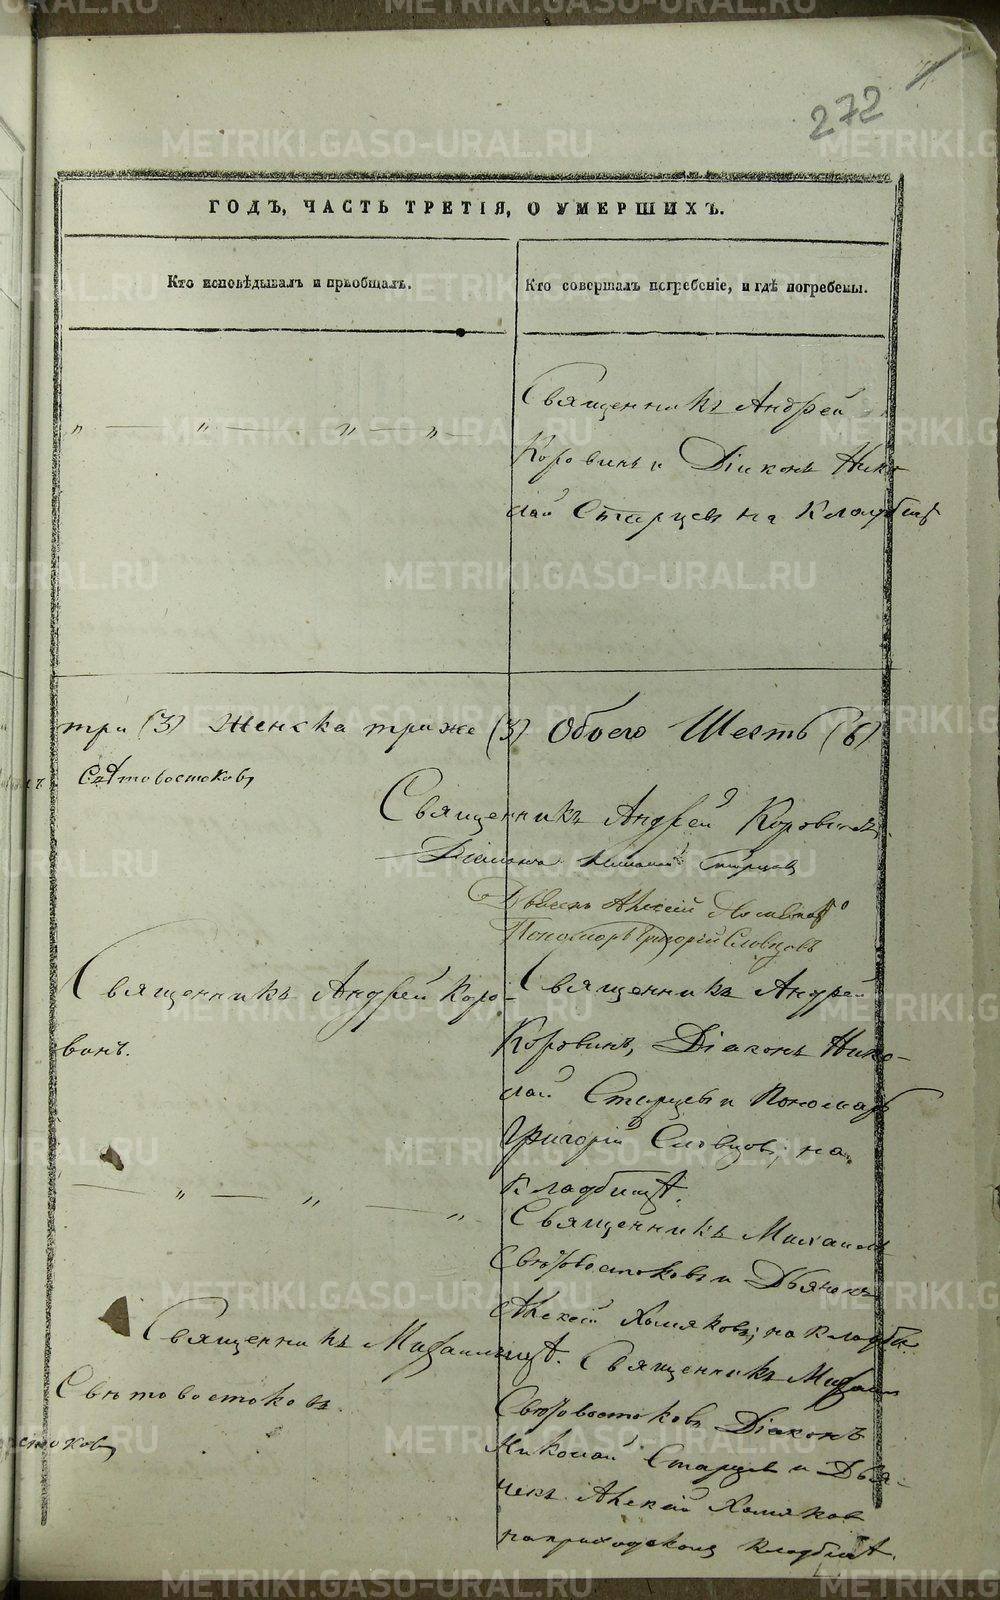 272
ГОДЪ, ЧАСТЬ ТРЕТІЯ, О УМЕРШИХЪ.
Кто исповѣдывалъ и пріобщалъ.
Кто совершалъ погребеніе, и гдѣ погребены.
Священникъ Андрей
Коровинъ и Діаконъ Нико
лай Старцевъ на Кладбищѣ
три (3) Женска триже (3) Обоего Шесть (6)
Священникъ Андрей Коровинъ
Діаконъ Николай Старцевъ
Алексій
Пономарь Григорій Словцовъ
Священникъ Андрей Коро-
винъ.
Священникъ Андрей
Коровинъ, Діаконъ Нико-
лай Старцевъ и Пономарь
Григорій Словцовъ, на
Кладбищѣ.
Священникъ Михаилъ
Свѣтовостоковъ и Дьячекъ
Алексій Хомяковъ, на кладби
щѣ. Священникъ Михаилъ
Священникъ Михаилъ
Свѣтовостоковъ.
Свѣтовостоковъ Діаконъ
Николай Старцевъ и Дья-
чекъ Алексій Хомяковъ
на приходскомъ кладбищѣ.
METRIKI.GASO-URAL.RU